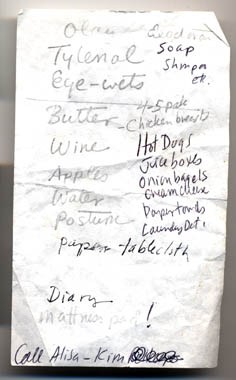 Soap
Tylenol
Shmpoo
etc.
Eye-wets
Butter
4-5 pak
-Chicken breasts
Wine
Hot Dogs
Juice boxes
Apples
Onion bagels
cream cheese
Water
Paper towels
Laundry Det.
paper-tablecloth
Diary
!
mattress pad
Call Alisa-Kim